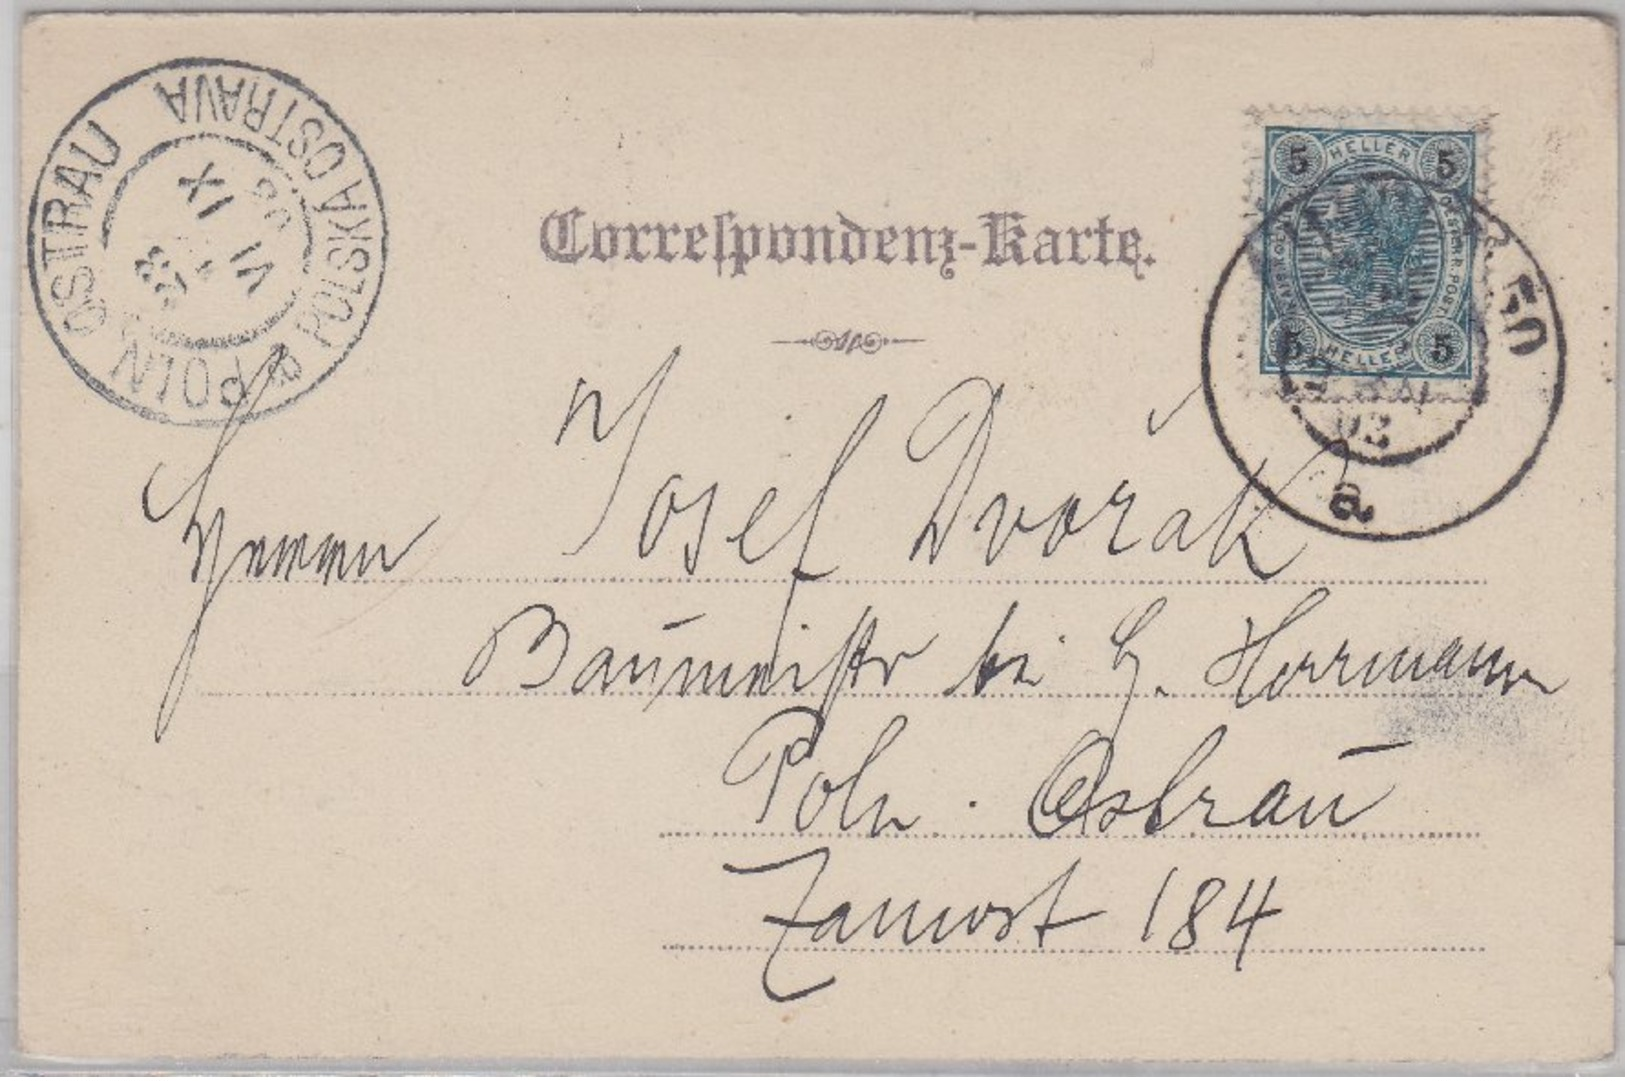 POLN. OSTRAU
POLSKÁ OSTRAVA
IX
VI
Correspondenz-Karte.
5 HELLER 5
5 HELLER 5
02
a
Herrn Josef Dvořák
Baumeistr bei H. Herrmann
Poln. Ostrau
Zamost 184